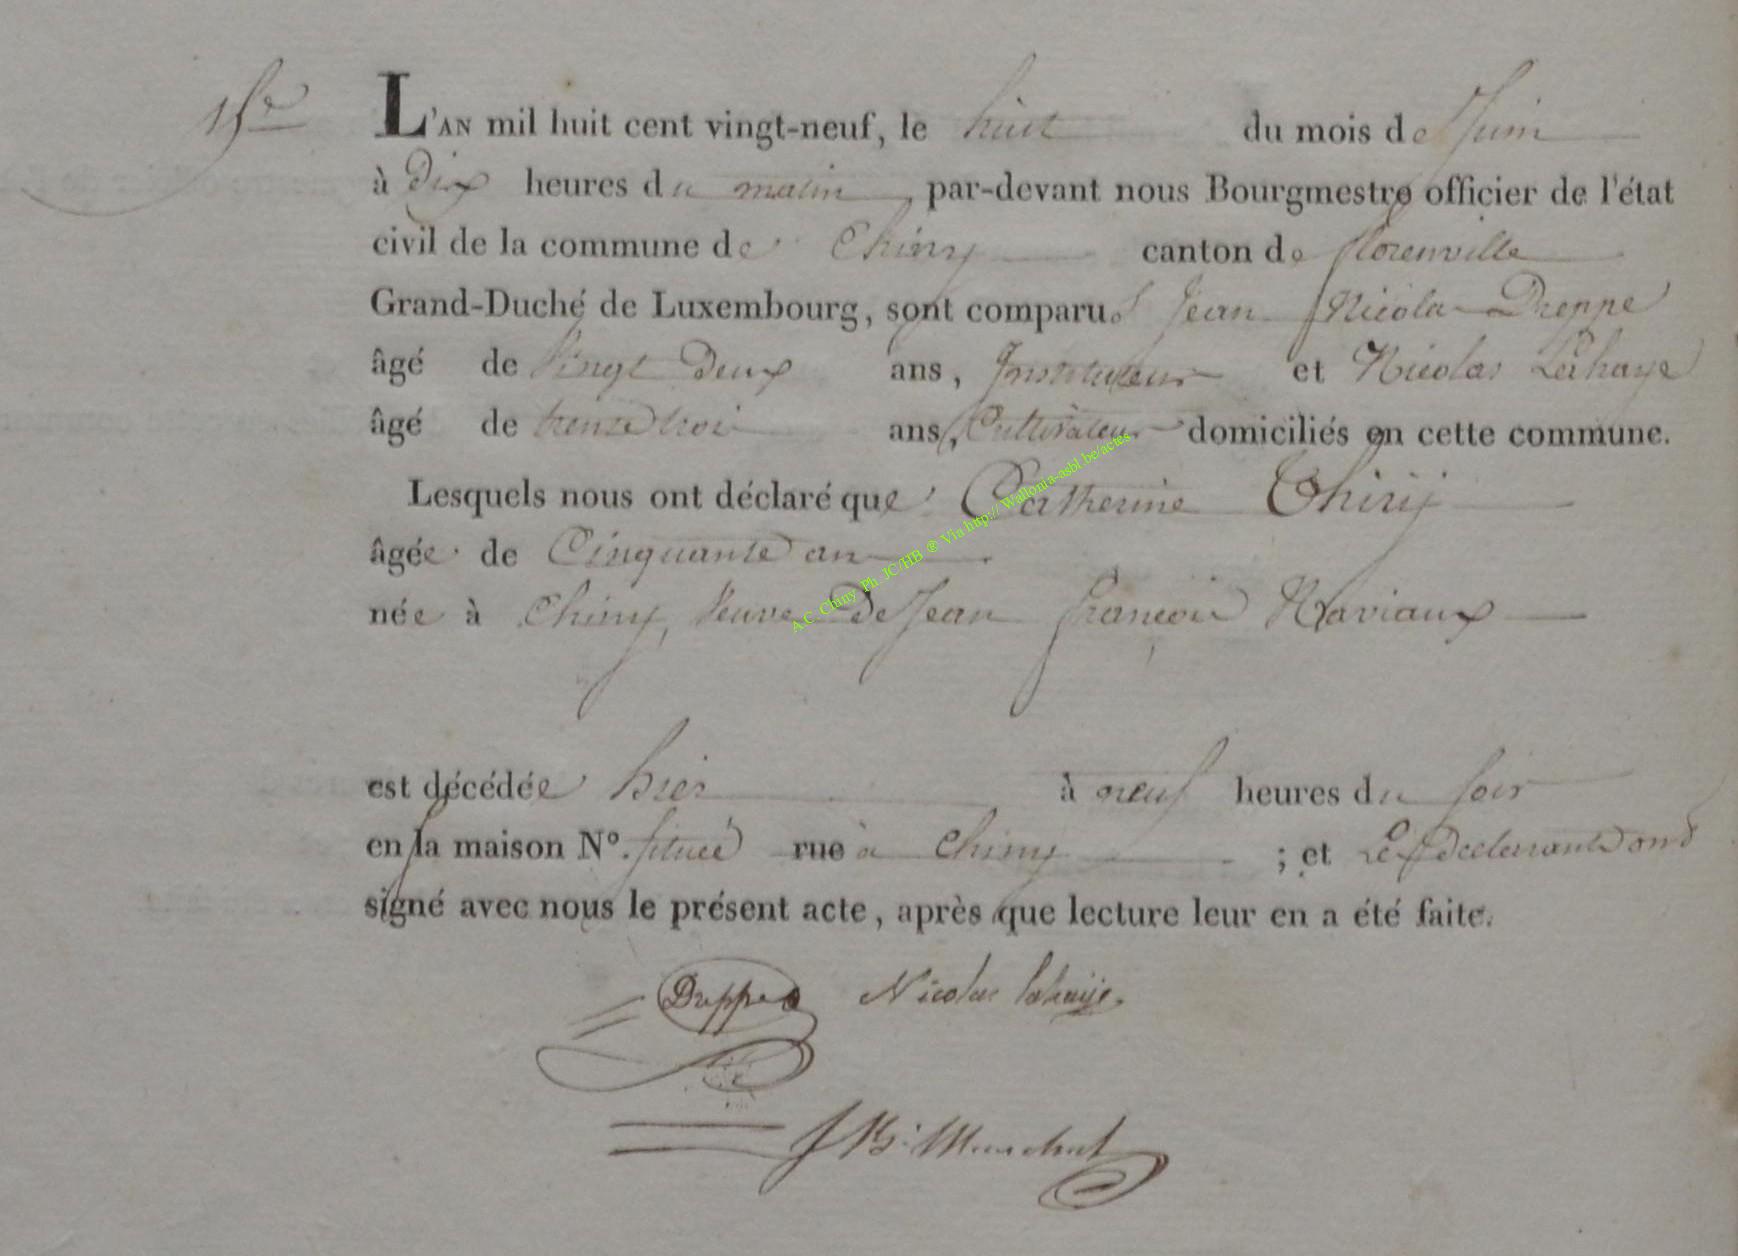 L'AN mil huit cent vingt-neuf, le huit du mois de Juin
à Dix heures du matin, par-devant nous Bourgmestre officier de l'état
civil de la commune de Chiny canton de florenville
Grand-Duché de Luxembourg, sont comparus Jean Nicolas Dreppe
âgé de Vingt Deux ans, Instituteur et Nicolas Lahaye
âgé de trente troi ans, Cultivateur domiciliés en cette commune.
Lesquels nous ont déclaré que Catherine Thiry
âgée de Cinquante an
née à Chiny, Veuve De Jean françois Naviaux
est décédée hier à neuf heures du soir
en sa maison N°. située rue à Chiny ; et Les Declarants ont
signé avec nous le présent acte, après que lecture leur en a été faite.
Dreppe Nicolas lahaije.
A.C. Chiny Ph JC/HB ® Via http://Wallonia-asbl.be/actes